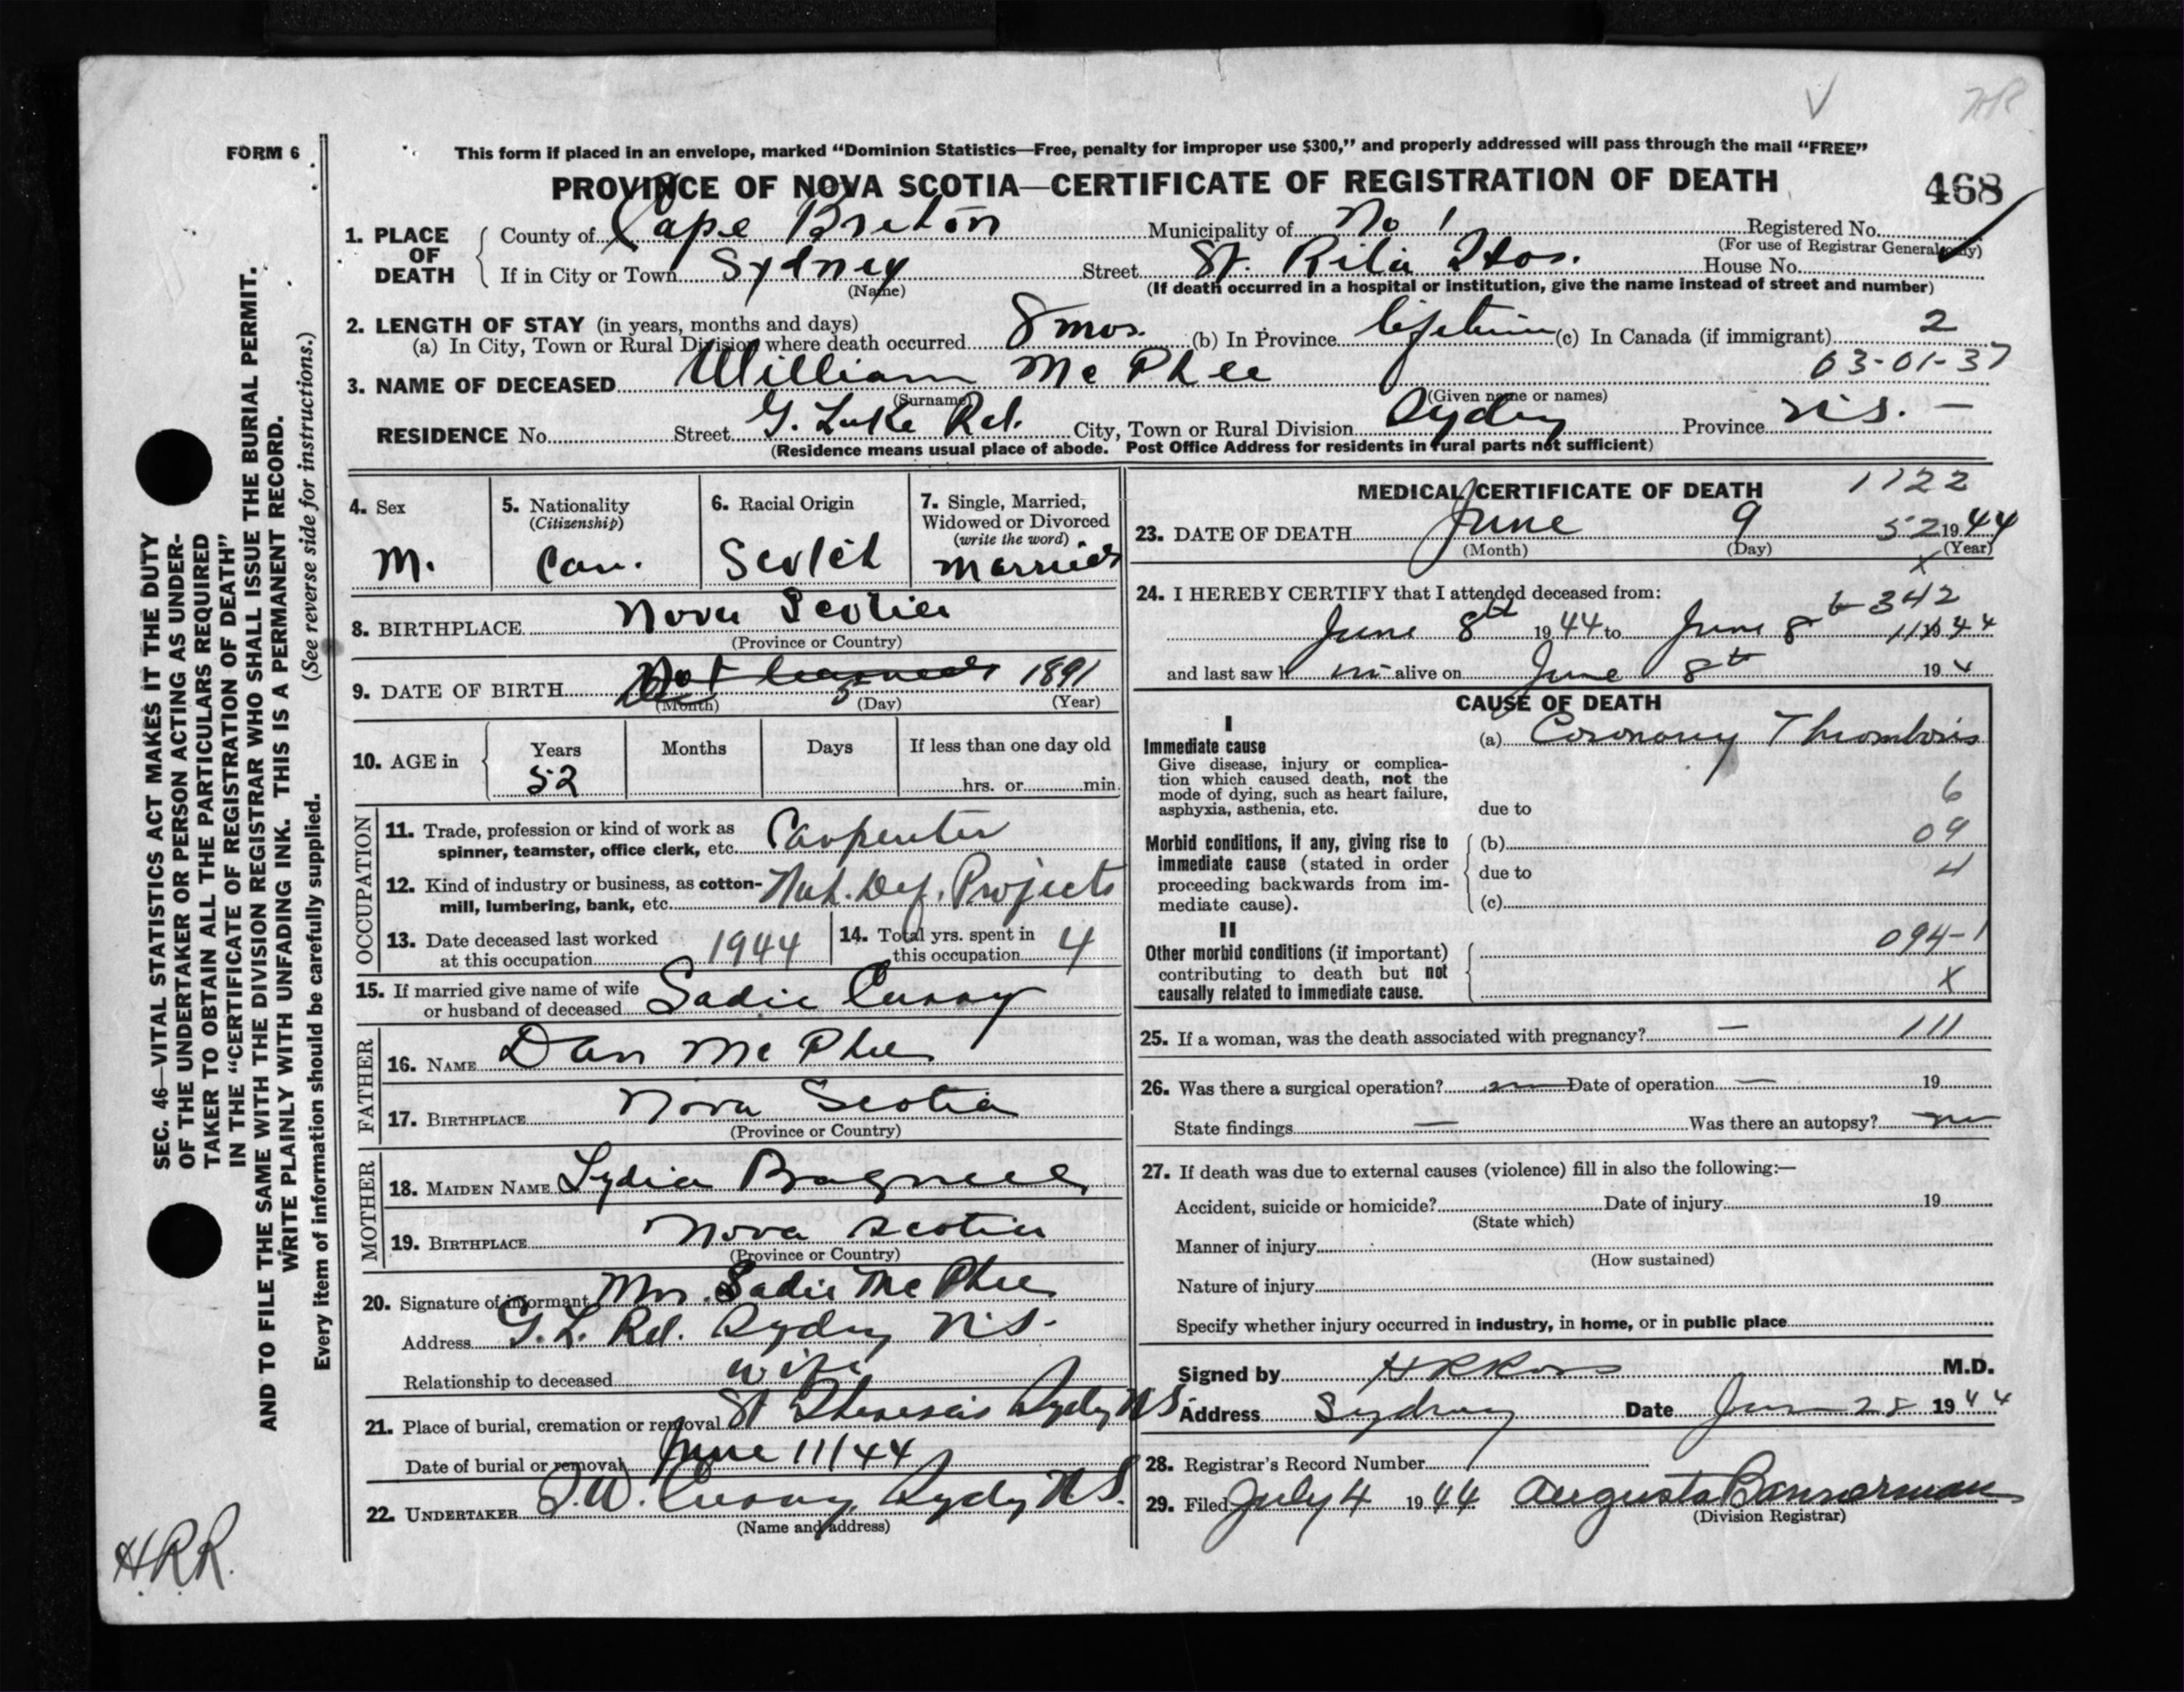 V HR
FORM 6
This form if placed in an envelope, marked “Dominion Statistics—Free, penalty for improper use $300,” and properly addressed will pass through the mail “FREE”
PROVINCE OF NOVA SCOTIA—CERTIFICATE OF REGISTRATION OF DEATH 468
1. PLACE OF DEATH County of Cape Breton Municipality of No 1 Registered No.
(For use of Registrar General only)
If in City or Town Sydney Street St. Rita Hos. House No.
(Name) (If death occurred in a hospital or institution, give the name instead of street and number)
2. LENGTH OF STAY (in years, months and days)
(a) In City, Town or Rural Division where death occurred 8 mos. (b) In Province lifetime (c) In Canada (if immigrant) 2
03-01-37
3. NAME OF DECEASED William Mc Phee
(Surname) (Given name or names)
RESIDENCE No. Street G. Lake Rd. City, Town or Rural Division Sydney Province N.S. —
(Residence means usual place of abode. Post Office Address for residents in rural parts not sufficient)
4. Sex M.
5. Nationality (Citizenship) Can.
6. Racial Origin Scotch
7. Single, Married, Widowed or Divorced (write the word) Married
8. BIRTHPLACE Nova Scotia
(Province or Country)
9. DATE OF BIRTH Not learned 1891
(Month) (Day) (Year)
10. AGE in Years 52 Months Days If less than one day old
hrs. or min.
OCCUPATION
11. Trade, profession or kind of work as spinner, teamster, office clerk, etc. Carpenter
12. Kind of industry or business, as cotton-mill, lumbering, bank, etc. Nat. Def. Projects
13. Date deceased last worked at this occupation 1944
14. Total yrs. spent in this occupation 4
15. If married give name of wife or husband of deceased Sadie Curray
FATHER
16. NAME Dan Mc Phee
17. BIRTHPLACE Nova Scotia
(Province or Country)
MOTHER
18. MAIDEN NAME Lydia Bagnell
19. BIRTHPLACE Nova Scotia
(Province or Country)
20. Signature of informant Mrs. Sadie Mc Phee
Address G. L. Rd. Sydney N.S.
Relationship to deceased wife
21. Place of burial, cremation or removal St Theresa's Sydney N.S.
Date of burial or removal June 11/44
22. UNDERTAKER Curray, Sydney N.S.
(Name and address)
MEDICAL CERTIFICATE OF DEATH 1122
23. DATE OF DEATH June 9 52 1944
(Month) (Day) (Year)
x
24. I HEREBY CERTIFY that I attended deceased from:
342
June 8th 1944 to June 8th 1944
and last saw him alive on June 8th 194
CAUSE OF DEATH
I
Immediate cause
Give disease, injury or complication which caused death, not the mode of dying, such as heart failure, asphyxia, asthenia, etc.
(a) Coronary Thrombosis
6
due to
Morbid conditions, if any, giving rise to immediate cause (stated in order proceeding backwards from immediate cause).
(b) 09
due to 4
(c)
II
Other morbid conditions (if important) contributing to death but not causally related to immediate cause.
094-1
x
25. If a woman, was the death associated with pregnancy? — 111
26. Was there a surgical operation? no Date of operation — 19
State findings — Was there an autopsy? no
27. If death was due to external causes (violence) fill in also the following:—
Accident, suicide or homicide? Date of injury 19
(State which)
Manner of injury
(How sustained)
Nature of injury
Specify whether injury occurred in industry, in home, or in public place
Signed by H R Ross M.D.
Address Sydney Date 28 1944
28. Registrar's Record Number
29. Filed July 4 1944 Augusta Bannerman
(Division Registrar)
SEC. 46—VITAL STATISTICS ACT MAKES IT THE DUTY
OF THE UNDERTAKER OR PERSON ACTING AS UNDER-
TAKER TO OBTAIN ALL THE PARTICULARS REQUIRED
IN THE “CERTIFICATE OF REGISTRATION OF DEATH”
AND TO FILE THE SAME WITH THE DIVISION REGISTRAR WHO SHALL ISSUE THE BURIAL PERMIT.
WRITE PLAINLY WITH UNFADING INK. THIS IS A PERMANENT RECORD.
Every item of information should be carefully supplied. (See reverse side for instructions.)
H.R.R.